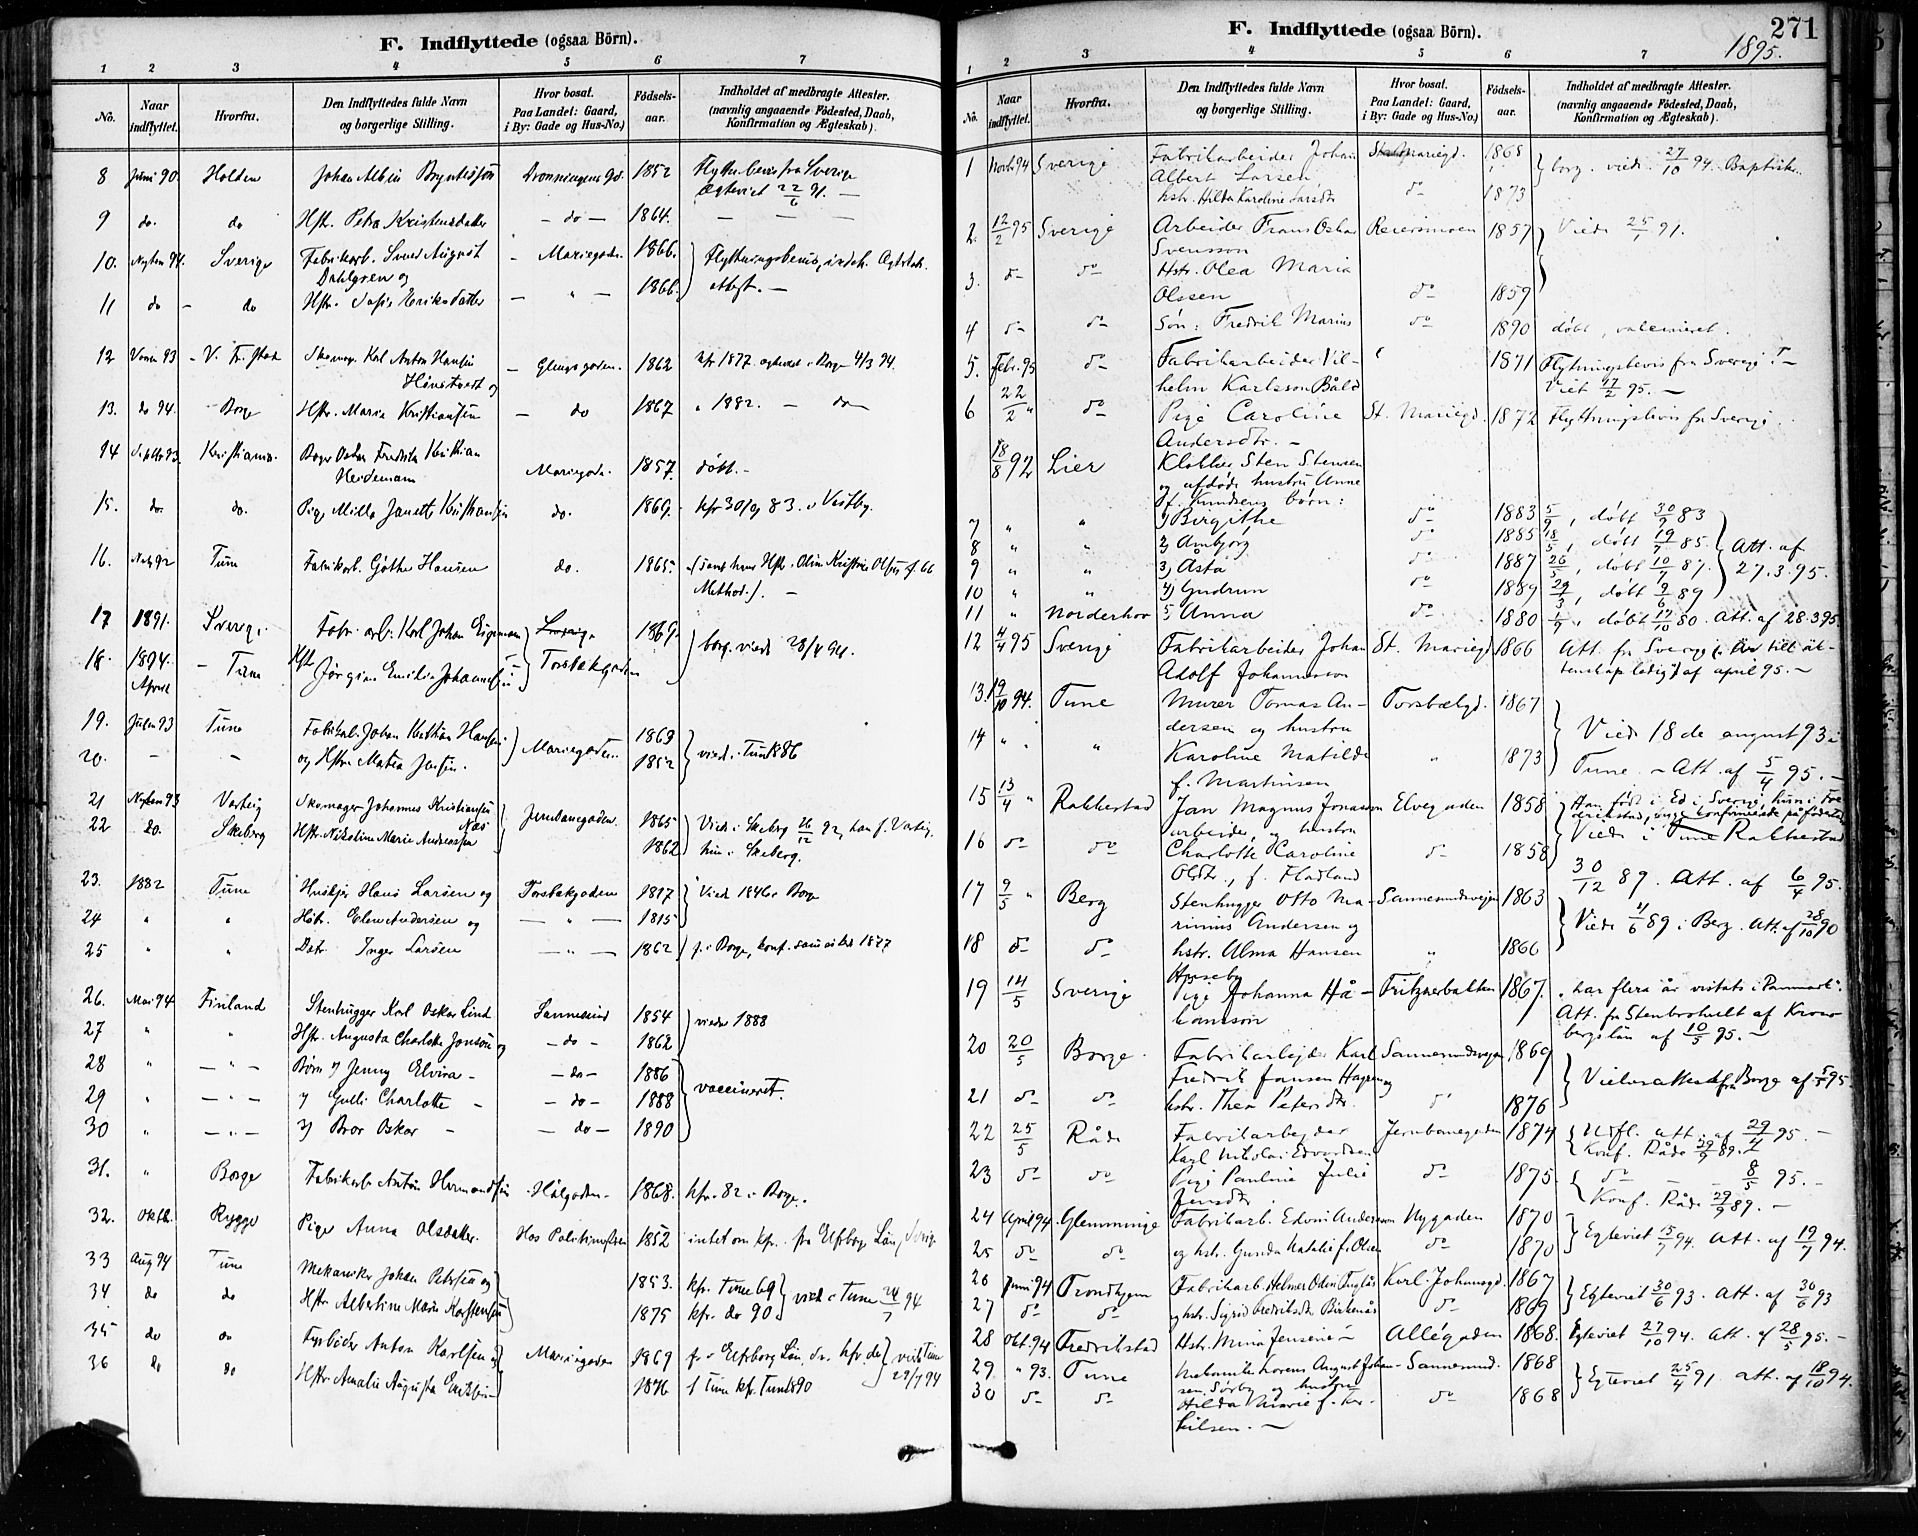 F. Indflyttede (ogsaa Börn).
1 2 3 4 5 6 7
No. Naar indflyttet. Hvorfra. Den Indflyttedes fulde Navn og borgerlige Stilling. Hvor bosat. Paa Landet: Gaard, i By: Gade og Hus-No.) Födsels-aar. Indholdet af medbragte Attester. (navnlig angaaende Födested, Daab, Konfirmation og Ægteskab).
8 Juni 90. Holden Johan Albin Dronningens Gd. 1852 Flyttebevis fra Sverige
Egteviet 22/6 91. —
9 do. do Hstr. Petra Kristensdatter — do — 1864. — — —
10. 94. Sverige Fabrikarb. Svend August Mariegaden. 1866.
Dahlgren og
11 do — do Hstr. Sofie Eriksdatter — " — 1866. attest. —
12 93 V. Fr.stad Skomag. Karl Anton Hansen Glengsgaden. 1862 kfr 1877 egteviet i Borge 4/3 94.
og
13. do 94. Borge Hstr. Maria Kristiansen — do 1867 " 1882. — do
14 Septbr 93. Kristiania. Bager Oskar Fredrik Kristian
Heidemann Mariegade. 1857. døbt. —
15. do. do. Pige Milla Janette Kristiansen do. 1869. kfr 30/9 83. i Vestby.
16. 92 Tune Fabrikarb. Göthe Hansen do. 1865.
Method.). —
17 1891. Sverige Fabr. arb. Karl Johan 1869.
borg. viede 28/4 94.
18. 1894. April — Tune Hstr Jørgine Emilie Johannesen Torsbekgaden
19. Julen 93 Tune Fabrikarb. Johan Kristian Hansen 1869
Mariegaden. viede i Tune 1886
20. — — og Hstr. Matea Jensen. 1852
21 93 Varteig Skomager Johannes Kristiansen Jernbanegaden. 1865 Viede i Skeberg 26/12 92, han f. Varteig
Næs
22 do. Skeberg Hstr. Nikoline Marie Andreassen 1862 hun i Skeberg.
23. 1882 Tune Huskjer Hans Larsen og Torsbekgaden 1817 Viede 1846 i Borge
24 " " Hstr. Elen Andersen og — " — 1815
25 " " Datr. Inger Larsen — " — 1862 f. i Borge, konf. 1877
26. Mai 94 Finland Stenhugger Karl Oskar Lind Sannesund 1854
viede 1888
27 " " Hstr. Augusta Charlotte Jonsen og — do — 1862
28 " — " — Børn 1) Jenny Elvira — — do — 1886
vaccineret.
29 " — " — 2) Gulli Charlotte — — do — 1888
30 " — " — 3) Bror Oskar — — do — 1890
31. " Borge Fabrikarb. Anton Hermansen 1868. kfr. 82 i Borge.
32. Oktb. Rygge Pige Anna Olsdatter. Hos Politimestren 1852 intet om kfr. fra Elfsborg Län, Sverige
33 Aug 94 Tune Mekaniker Johan Petersen og 1853. kfr. Tune 69
viede i Tune 29/7 94
34 do do Hstr Albertine Marie Karstensen 1875 kfr. do 90
35 do do Fyrbøder Anton Karlsen og Mariegaden 1869 f. i Elfsborg Län, Sv. kfr. do viede Tune
29/7 94
36 do do Hstr. Amalie Augusta Eriksen 1876 f Tune kfr. Tune 1890
F. Indflyttede (ogsaa Börn). 271
1895.
1 2 3 4 5 6 7
No. Naar indflyttet. Hvorfra. Den Indflyttedes fulde Navn og borgerlige Stilling. Hvor bosat. Paa Landet: Gaard, i By: Gade og Hus-No.) Födsels-aar. Indholdet af medbragte Attester. (navnlig angaaende Födested, Daab, Konfirmation og Ægteskab).
1 Novb. 94 Sverige Fabrikarbeider Johan St. Mariegd. 1868 borg. viede 27/10 94. Baptister.
Albert Larsen
hstr. Hilda Karoline Larsdtr do 1873
2. 12/2 95 Sverige Arbeider Frans Oskar Reiersmoen 1857 Viede 25/1 91.
Svensson
3. do do Hstr. Olea Maria
Olssen do 1859
4 do do Søn: Fredrik Marius do 1890 døbt, vaccineret.
5. Febr. 95 do Fabrikarbeider Vil- 1871 Flytningsbevis fra Sverige. —
helm Karlsson Båld Viet 17/2 95. —
6 22/2 " do Pige Caroline St. Mariegd. 1872 Flyttningsbevis fra Sverige.
Andersdtr. —
18/8 92 Lier Klokker Sten Stensen
og afdøde hustru Anne
f. Knudsens børn:
7 " " 1) Birgithe do 1883 5/9, døbt 30/9 83
8 " " 2) Ambjørg do 1885 18/5, døbt 19/7 85. Att. af
9 " " 3) Åsta do 1887 26/5, døbt 10/7 87. 27.3.95.
10 " " 4) Gudrun do 1889 29/3, døbt 9/6 89
11 " Norderhov 5) Anna do 1880 1/9, døbt 17/10 80. Att. af 28.3.95
12 4/4 95 Sverige Fabrikarbeider Johan St. Mariegd 1866 Att. fra Sverige (: är till äk-
Adolf Johannesson tenskap ledig:) af april 95. —
13. 19/10 94. Tune Murer Tomas An- Torsbækgd. 1867
dersen og hustru Viede 18de august 93 i
14 " " Karoline Matilde " 1873 Tune. — Att. af 5/4 95. —
f. Martinsen
15 13/4 " Rakkestad Jan Magnus Jonasson Elvegaden 1858 Han født i Ed i Sverige, hun i Fre-
arbeider, og hustru derikstad,
16 do do Charlotte Caroline do 1858 Viede i Tune Rakkestad
Olsdtr., f. Fladland 30/12 89. Att. af 6/4 95.
17 9/5 " Berg Stenhugger Otto Ma- Sannesundsveien 1863
rinius Andersen og Viede 11/6 89 i Berg. Att. af 28/10 90
18 do do hstr. Alma Hansen " 1866
Huseby
19 14/5 Sverige Pige Johanna Hå- Fritznerbakken 1867. "har flera år vistats i Danmark".
kansson Att. fra Stenbrohult af Krono-
bergslän af 10/5 95. —
20 20/5 Borge. Fabrikarbejder Karl Sannesundsveien 1869
Fredrik Jansen Hagen og Vielsesattest fra Borge af 5/5 95.
21 do do hstr. Thea Petersdtr. do 1876
22 25/5 Råde Fabrikarbejder Jernbanegaden 1874 Udfl. att. af 29/4 95. —
Karl Nikolai Edvardsen Konf. Råde 29/9 89.
23 do do Pige Pauline Julie do 1875 do — — 8/5 95. —
Jensdtr. Konf. Råde 29/9 89. —
24 April 94. Glemminge Fabrikarb. Edvin Andersson Nygaden 1870 Egteviet 15/7 94. Att. af 19/7 94.
25 do do og hstr. Gunda Natalie f. Olsen do 1870
26 Juni 94 Trondhjem Fabrikarb. Helmer Odin Karl-Johansgd. 1867 Egteviet 30/6 93. Att. af 30/6 93
27 do do og hstr. Sigrid Fredriksdtr Birkenås do 1869
28 Okt. 94 Fredrikstad Hstr. Mina Jensine — Allégaden 1868. Egteviet 27/10 94. Att. af 28/5 95. —
29 " 93. Tune Lorens August Johan- Sannesund. 1868
sen Sørby og hustru Egteviet 25/4 91 att. af 18/10 94.
30 do do Hilda Marie f. do 1868